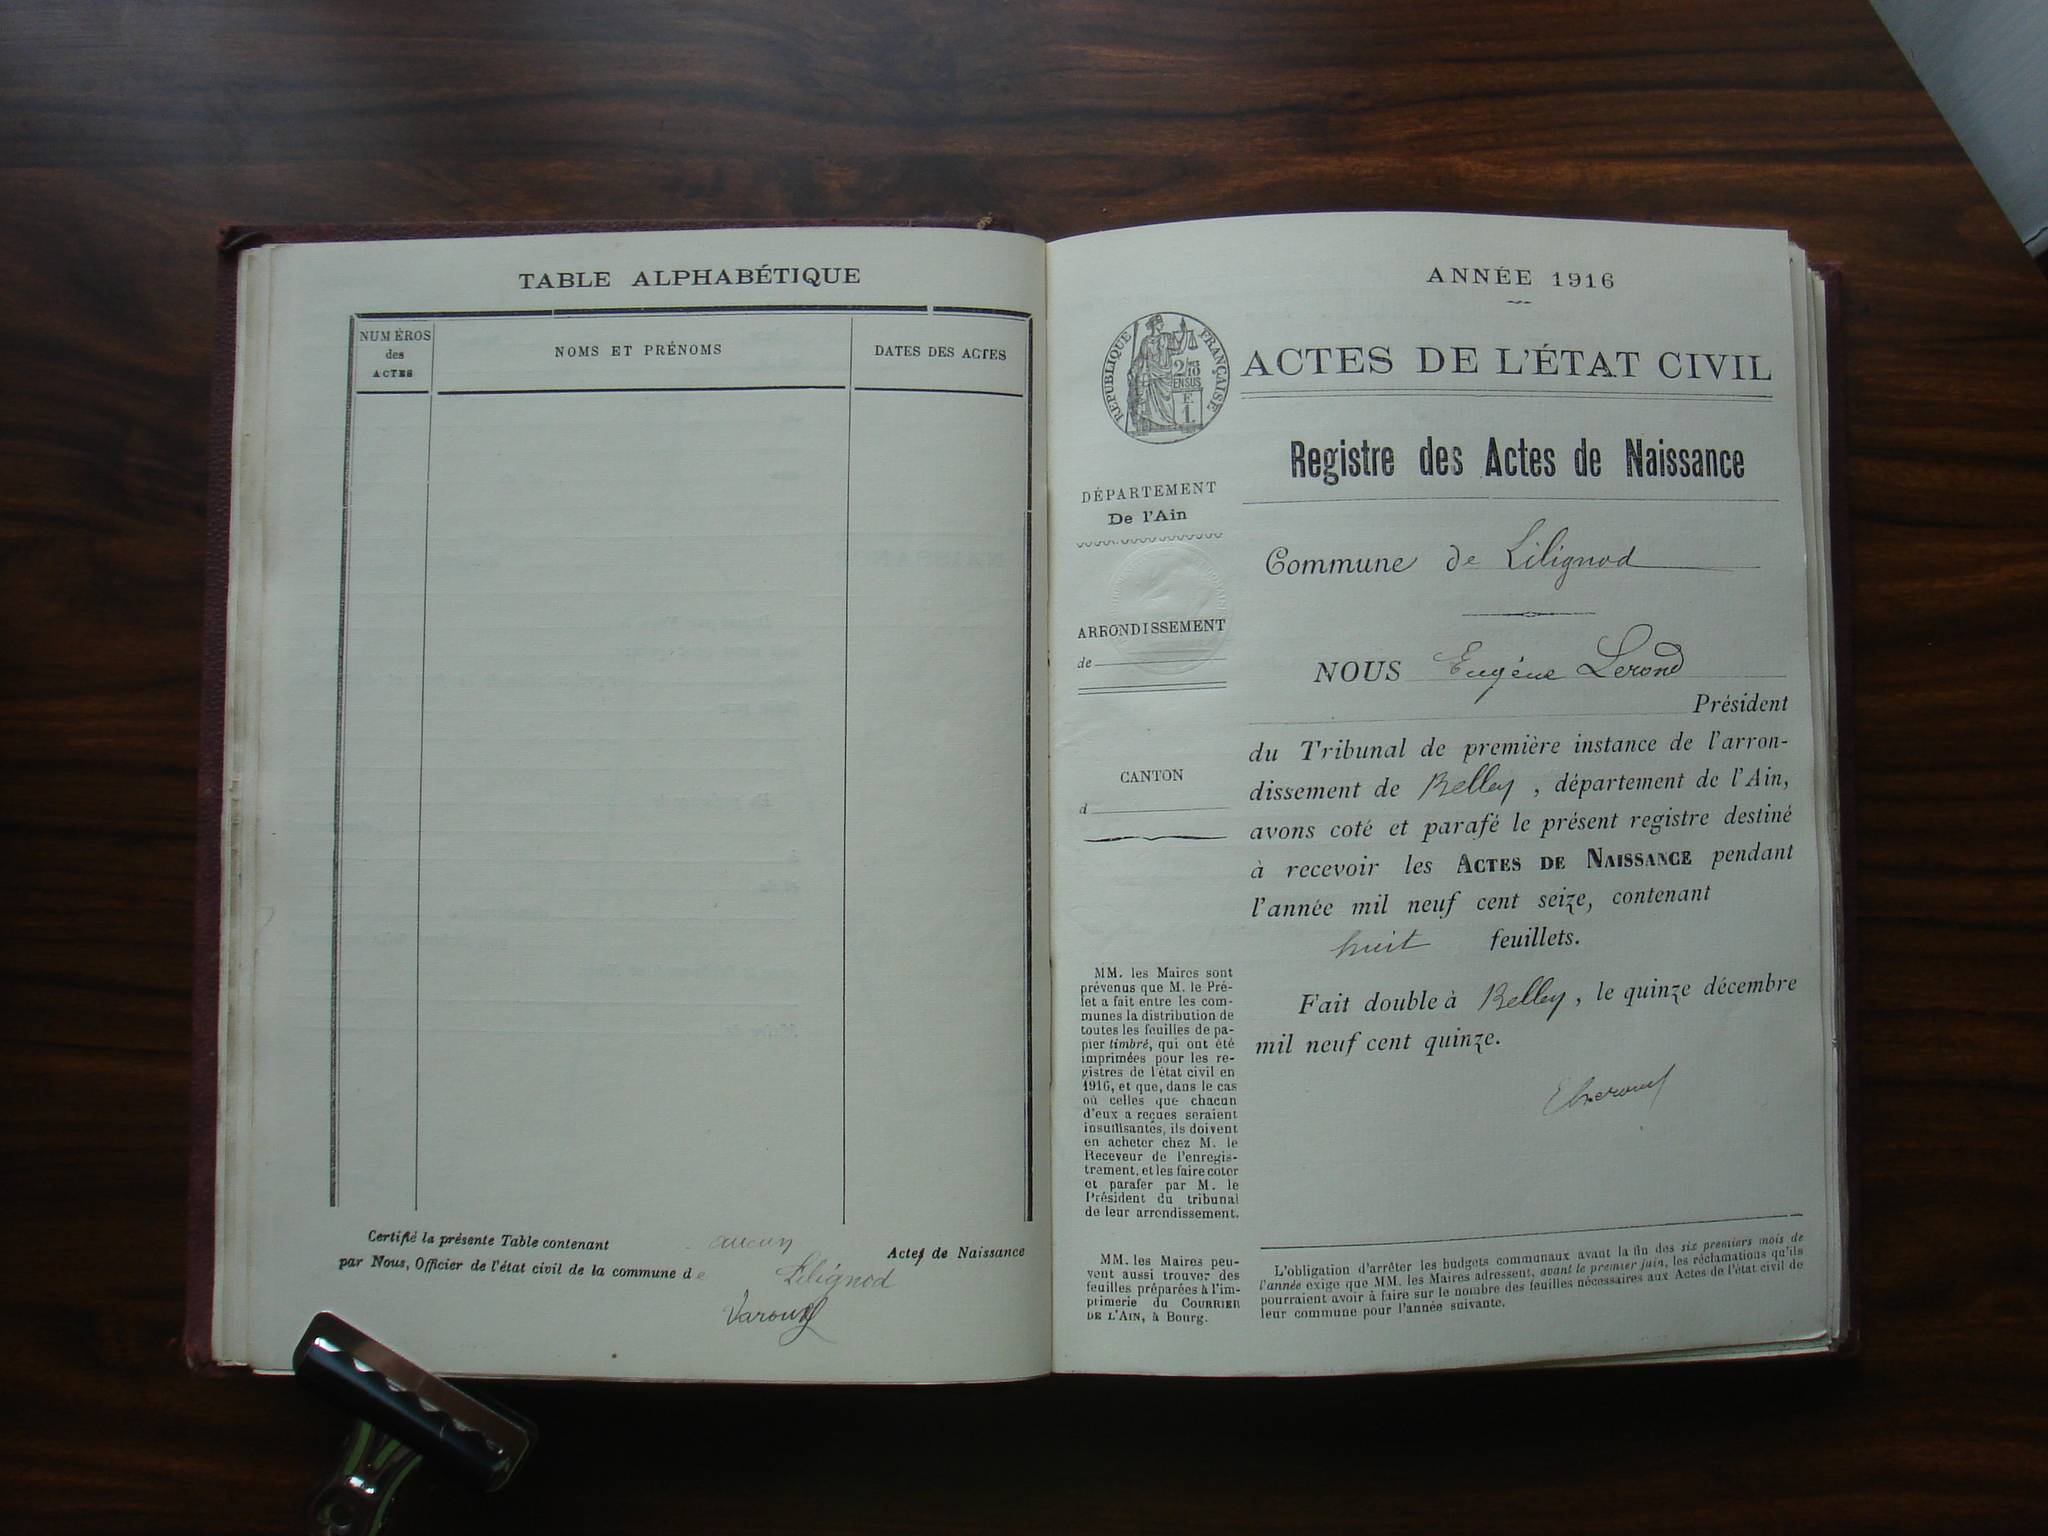 TABLE ALPHABÉTIQUE
NUMÉROS
des
ACTES
NOMS ET PRÉNOMS
DATES DES ACTES
Certifié la présente Table contenant aucun Actes de Naissance
par Nous, Officier de l'état civil de la commune de Lilignod
ANNÉE 1916
RÉPUBLIQUE FRANÇAISE
2/10
EN SUS
F.
1.
ACTES DE L'ÉTAT CIVIL
Registre des Actes de Naissance
DÉPARTEMENT
De l'Ain
ARRONDISSEMENT
de
CANTON
d
MM. les Maires sont
prévenus que M. le Pré-
fet a fait entre les com-
munes la distribution de
toutes les feuilles de pa-
pier timbré, qui ont été
imprimées pour les re-
gistres de l'état civil en
1916, et que, dans le cas
où celles que chacun
d'eux a reçues seraient
insuffisantes, ils doivent
en acheter chez M. le
Receveur de l'enregis-
trement, et les faire coter
et parafer par M. le
Président du tribunal
de leur arrondissement.
MM. les Maires peu-
vent aussi trouver des
feuilles préparées à l'im-
primerie du COURRIER
DE L'AIN, à Bourg.
Commune de Lilignod
NOUS Eugéne Lerond
Président
du Tribunal de première instance de l'arron-
dissement de Belley, département de l'Ain,
avons coté et parafé le présent registre destiné
à recevoir les ACTES DE NAISSANCE pendant
l'année mil neuf cent seize, contenant
huit feuillets.
Fait double à Belley, le quinze décembre
mil neuf cent quinze.
L'obligation d'arrêter les budgets communaux avant la fin des six premiers mois de
l'année exige que MM. les Maires adressent, avant le premier juin, les réclamations qu'ils
pourraient avoir à faire sur le nombre des feuilles nécessaires aux Actes de l'état civil de
leur commune pour l'année suivante.